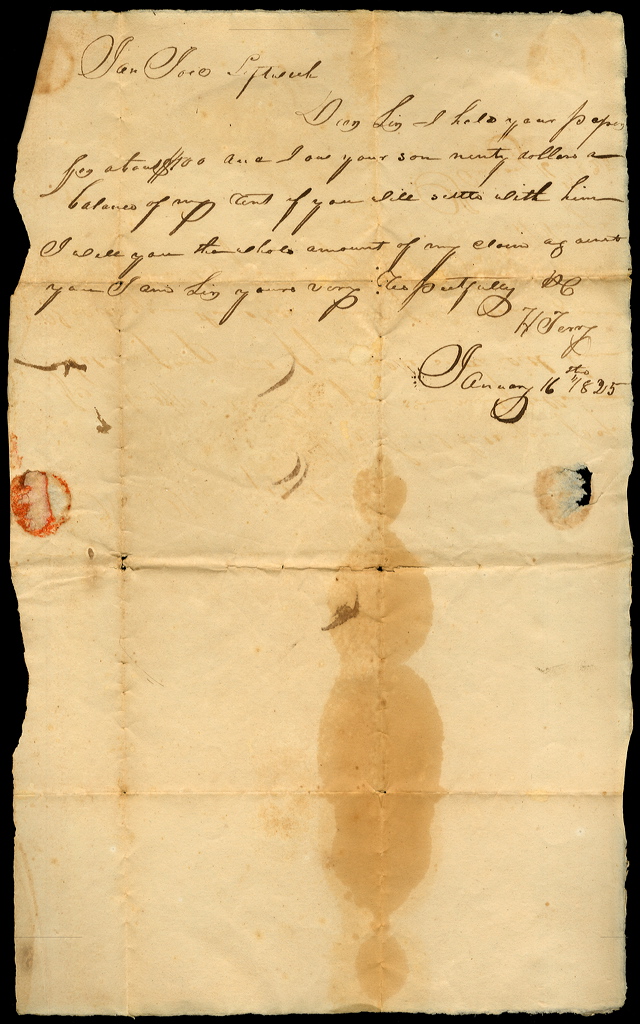 Gen Joel Leftwich
Dear Sir I hold your paper
for about $100 and I owe your son ninty dollars a
balance of my rent if you will settle with him
I will you the whole amount of my claim against
you I am Sir yours very respectfully &C
H Terry
January 16th 1825